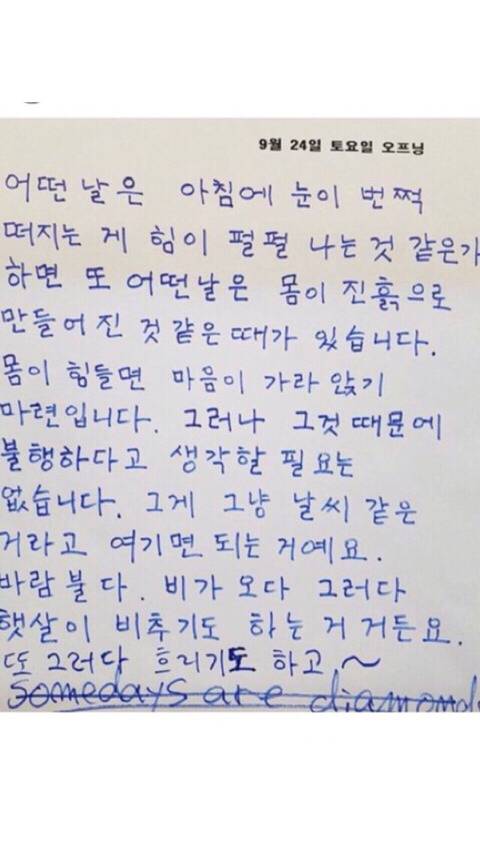 9월 24일 토요일 오프닝
어떤 날은 아침에 눈이 번쩍
떠지는 게 힘이 펄펄 나는 것 같은가
하면 또 어떤날은 몸이 진흙으로
만들어 진 것 같은 때가 있습니다.
몸이 힘들면 마음이 가라 앉기
마련입니다. 그러나 그것 때문에
불행하다고 생각할 필요는
없습니다. 그게 그냥 날씨 같은
거라고 여기면 되는 거예요.
바람 불다. 비가 오다 그러다
햇살이 비추기도 하는 거 거든요.
또 그러다 흐리기도 하고.~
Somedays are diamond